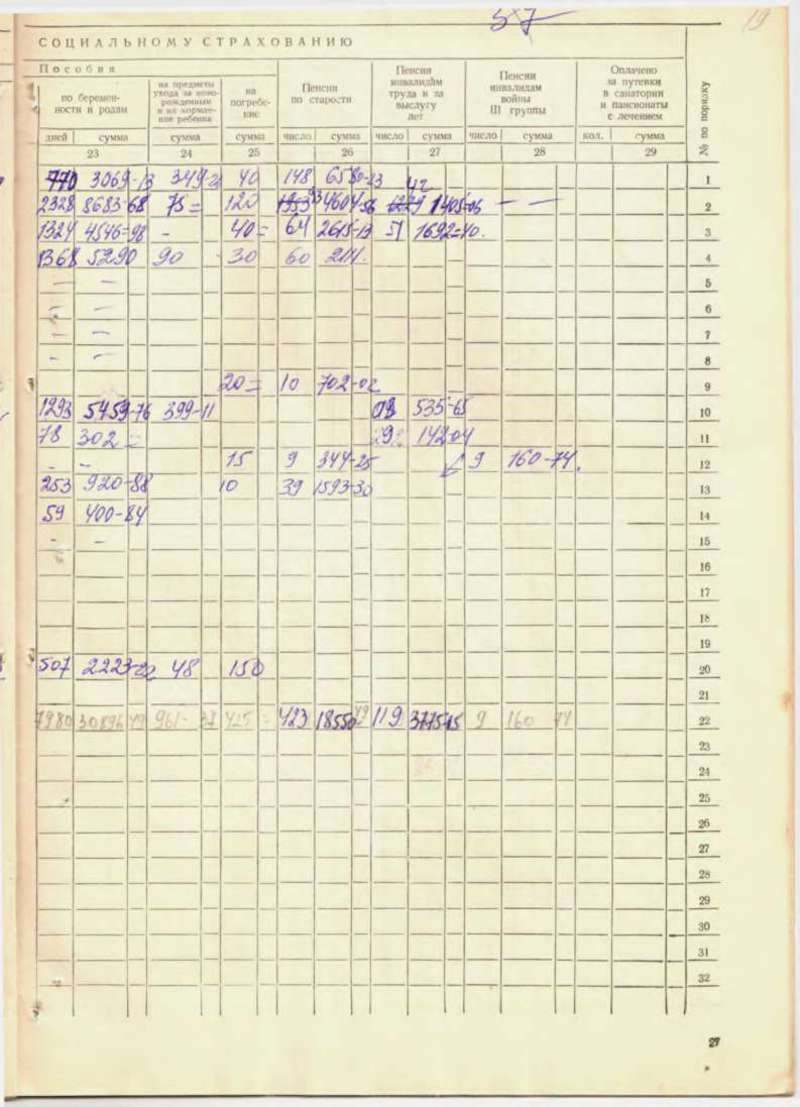 57
19
СОЦИАЛЬНОМУ СТРАХОВАНИЮ
Пособия
по беремен-
ности и родам
на предметы
ухода за ново-
рожденным
и на кормле-
ние ребенка
на
погребе-
ние
Пенсии
по старости
Пенсии
инвалидам
труда и за
выслугу
лет
Пенсии
инвалидам
войны
III группы
Оплачено
за путевки
в санатории
и пансионаты
с лечением
№ по порядку
дней сумма сумма сумма число сумма число сумма число сумма кол. сумма
23 24 25 26 27 28 29
770 3069-13 40 148 1
2328 8683-68 75= 120 93 4604-56 42 1405-05 — — 2
1324 4546=98 - 40= 64 2615-13 51 1692=40. 3
1368 5290 90 30 60 4
— — 5
- — 6
— — 7
- — 8
20= 10 702-02 9
1293 5459-76 399-11 535-65 10
78 302= 142-04 11
- - 15 9 344-25 9 160-74. 12
253 920-88 10 39 1593-30 13
59 400-84 14
- - 15
16
17
18
19
507 2223-22 48 150 20
21
7980 30896 49 961- 425 = 423 18550 49 119 3775-15 9 160 74 22
23
24
25
26
27
28
29
30
31
32
27